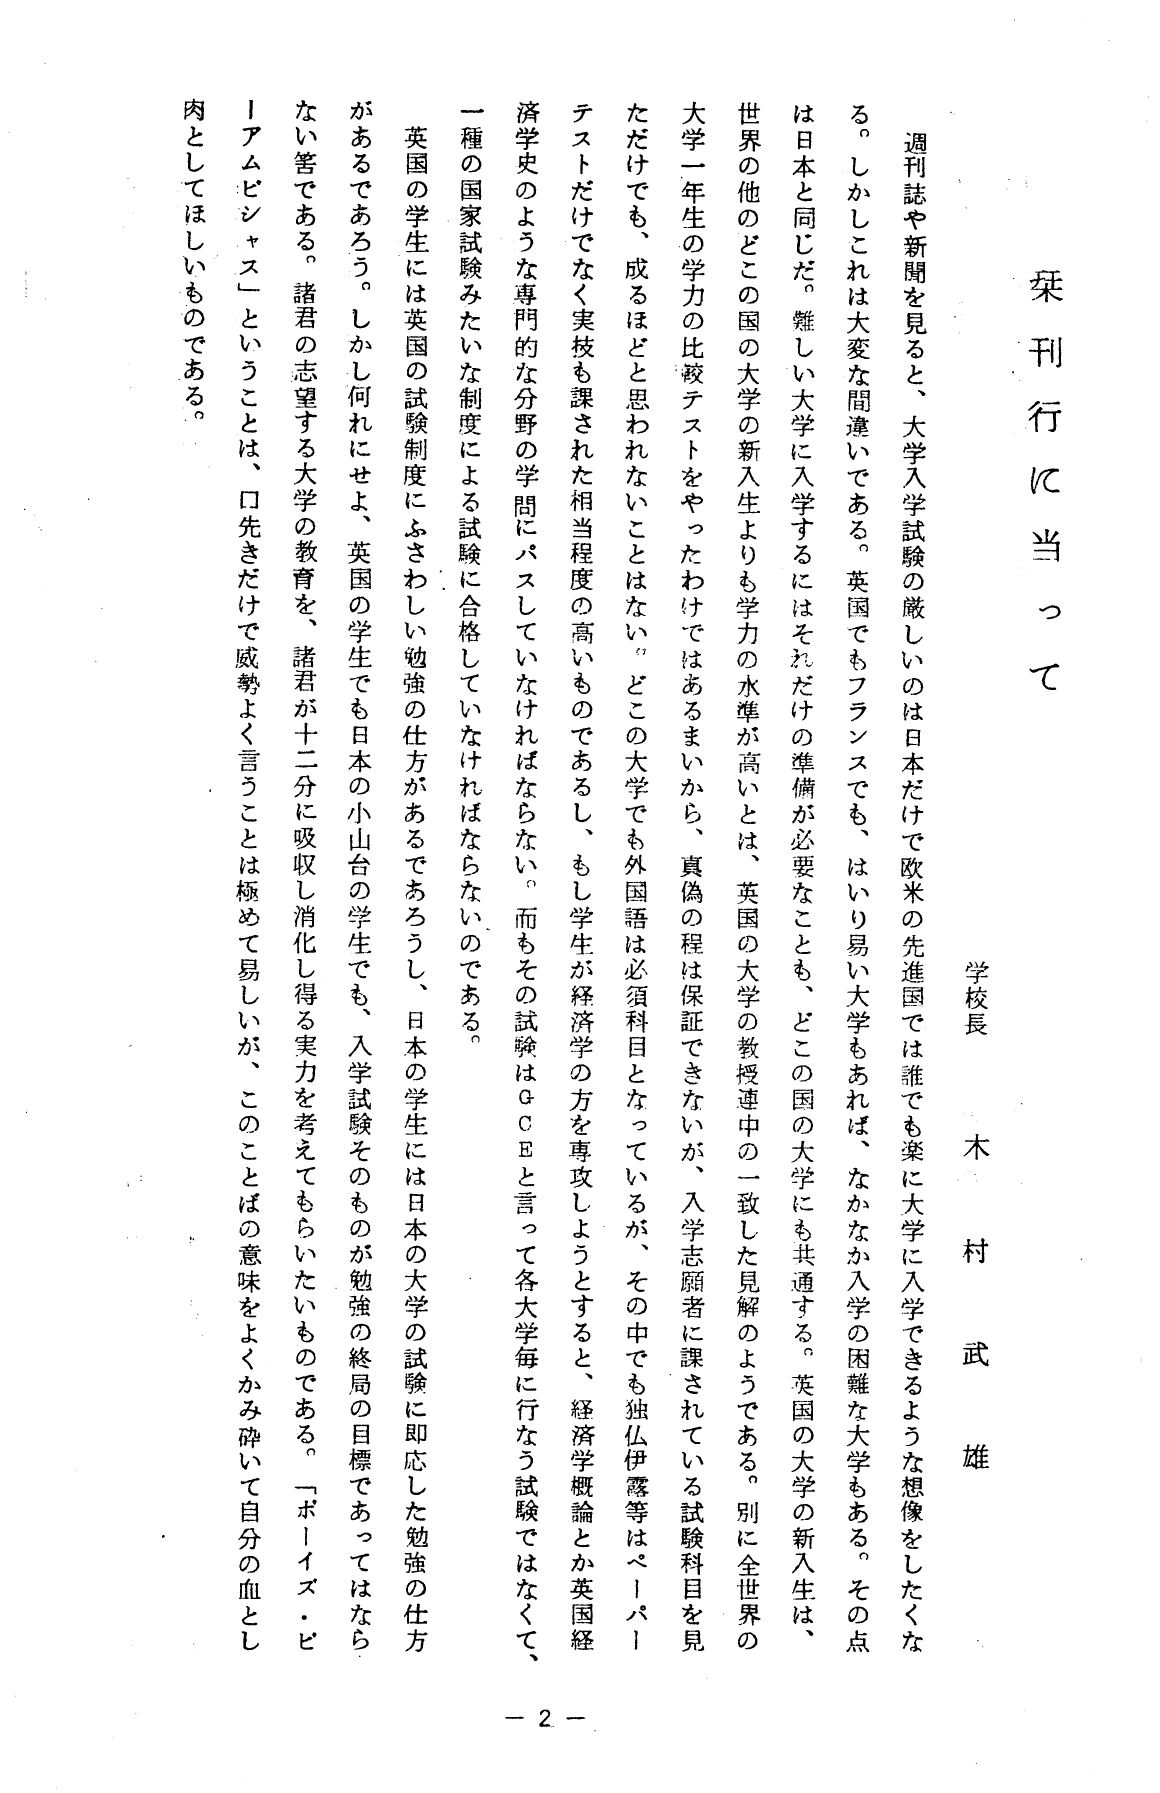 栞刊行に当って
学校長　木村武雄
週刊誌や新聞を見ると、大学入学試験の厳しいのは日本だけで欧米の先進国では誰でも楽に大学に入学できるような想像をしたくな
る。しかしこれは大変な間違いである。英国でもフランスでも、はいり易い大学もあれば、なかなか入学の困難な大学もある。その点
は日本と同じだ。難しい大学に入学するにはそれだけの準備が必要なことも、どこの国の大学にも共通する。英国の大学の新入生は、
世界の他のどこの国の大学の新入生よりも学力の水準が高いとは、英国の大学の教授連中の一致した見解のようである。別に全世界の
大学一年生の学力の比較テストをやったわけではあるまいから、真偽の程は保証できないが、入学志願者に課されている試験科目を見
ただけでも、成るほどと思われないことはない。どこの大学でも外国語は必須科目となっているが、その中でも独仏伊露等はペーパー
テストだけでなく実技も課された相当程度の高いものであるし、もし学生が経済学の方を専攻しようとすると、経済学概論とか英国経
済学史のような専門的な分野の学問にパスしていなければならない。而もその試験はGCEと言って各大学毎に行なう試験ではなくて、
一種の国家試験みたいな制度による試験に合格していなければならないのである。
英国の学生には英国の試験制度にふさわしい勉強の仕方があるであろうし、日本の学生には日本の大学の試験に即応した勉強の仕方
があるであろう。しかし何れにせよ、英国の学生でも日本の小山台の学生でも、入学試験そのものが勉強の終局の目標であってはなら
ない筈である。諸君の志望する大学の教育を、諸君が十二分に吸収し消化し得る実力を考えてもらいたいものである。「ボーイズ・ビ
ーアムビシャス」ということは、口先きだけで威勢よく言うことは極めて易しいが、このことばの意味をよくかみ砕いて自分の血とし
肉としてほしいものである。
— 2 —